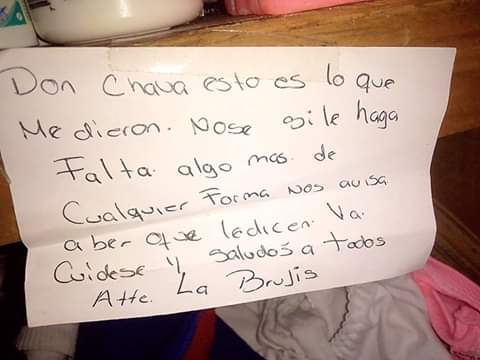 Don Chava esto es lo que
Me dieron. Nose si le haga
Falta. algo mas. de
Cualquier Forma Nos avisa
aber que le dicen. Va.
Cuidese y saludos a todos
Atte. La Brujis